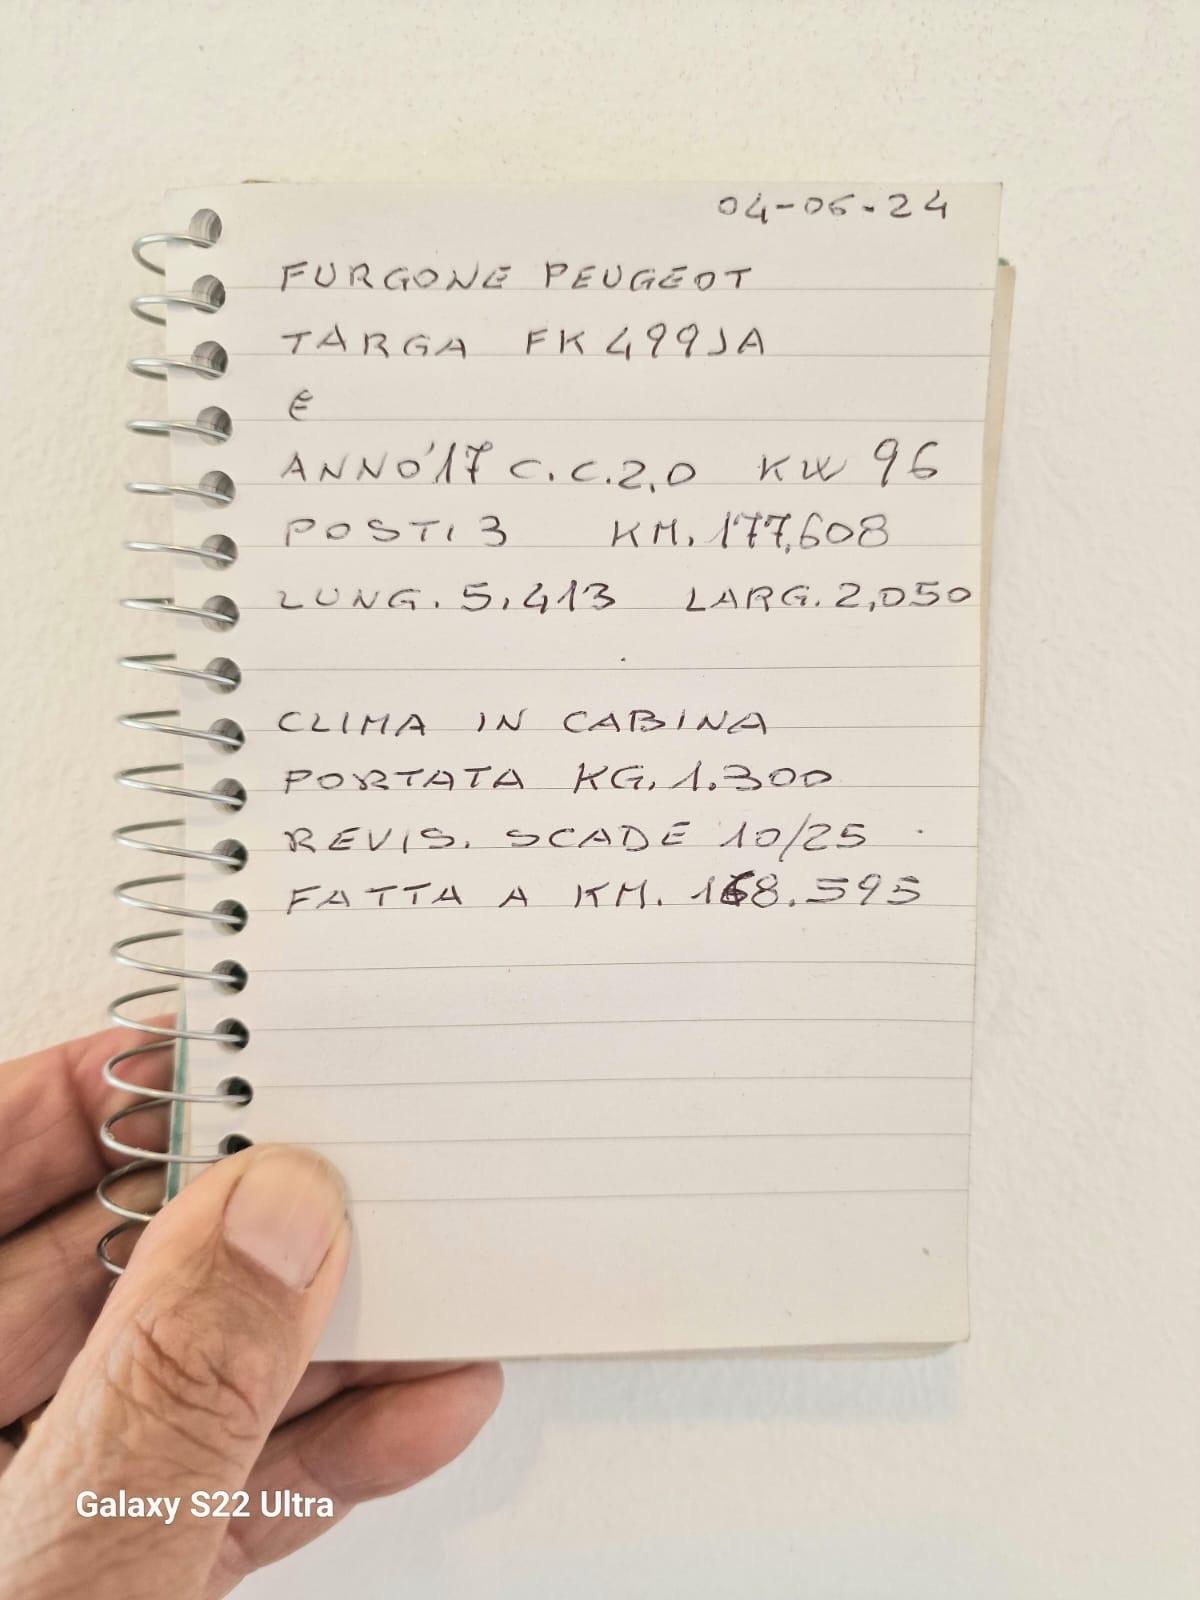 04-06-24
FURGONE PEUGEOT
TARGA FK499JA
E
ANNO'17 C.C.2,0 KW 96
POSTI 3 KM. 177.608
LUNG. 5,413 LARG. 2,050
CLIMA IN CABINA
PORTATA KG. 1.300
REVIS. SCADE 10/25
FATTA A KM. 168.595
Galaxy S22 Ultra